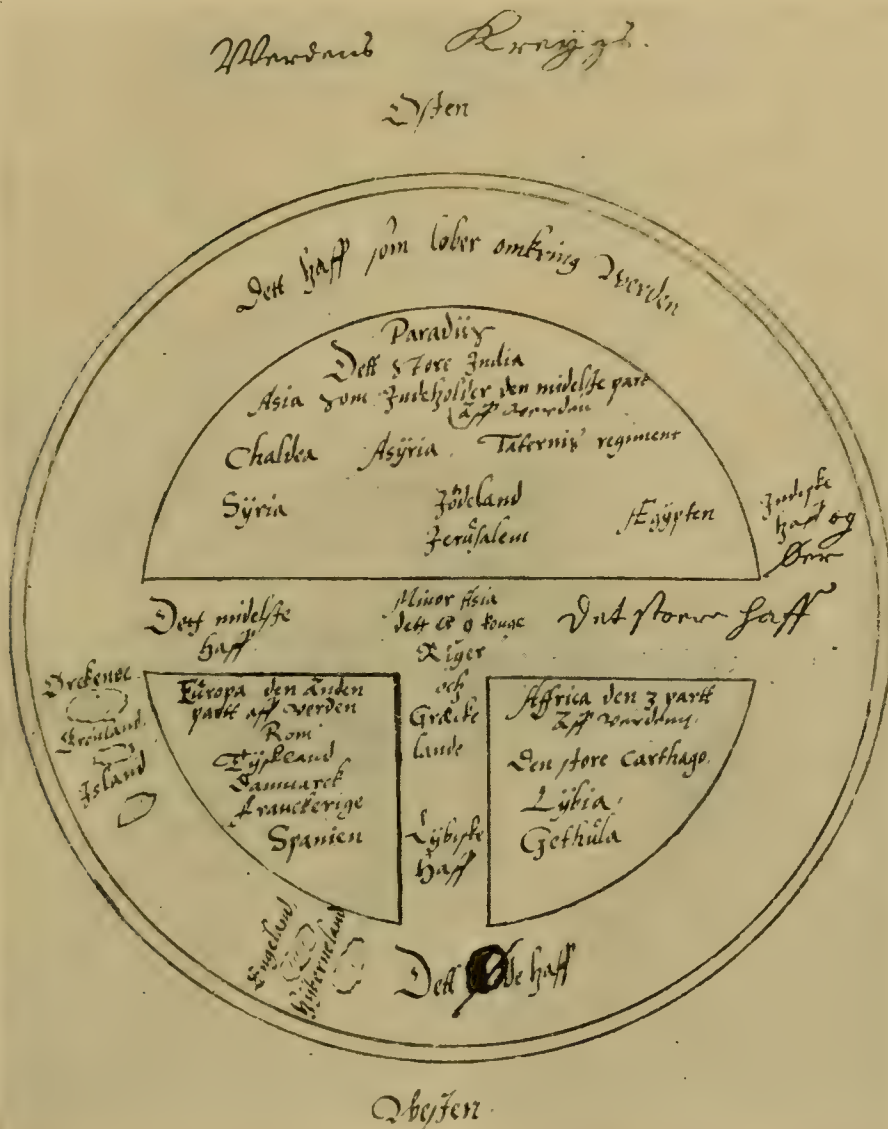 Werdens Kreyzs.
Østen
Dett haff som løber omkring Werden
Paradiis
Dett store India
Asia som Indeholder den midelste part
aff werden
Chaldea Asÿria. Taternis regiment
Sÿria Jødeland Ægÿpten
Jerusalem
Indiske
haff og
Øer
Dett midelste
haff.
Minor Asia
dett er 9 konge
Riger
och
Græcke
lande
Det store haff
Orckenøe.
Grønland.
Island
Europa den Anden
partt aff werden
Rom
Tÿskland
Danmarck
Franckerige
Spanien
Lÿbiske
haff
Affrica den 3 partt
Aff werden.
Den store Carthago.
Lÿbia.
Gethula
Engeland.
Hÿberneland
Dett haff
Westen.